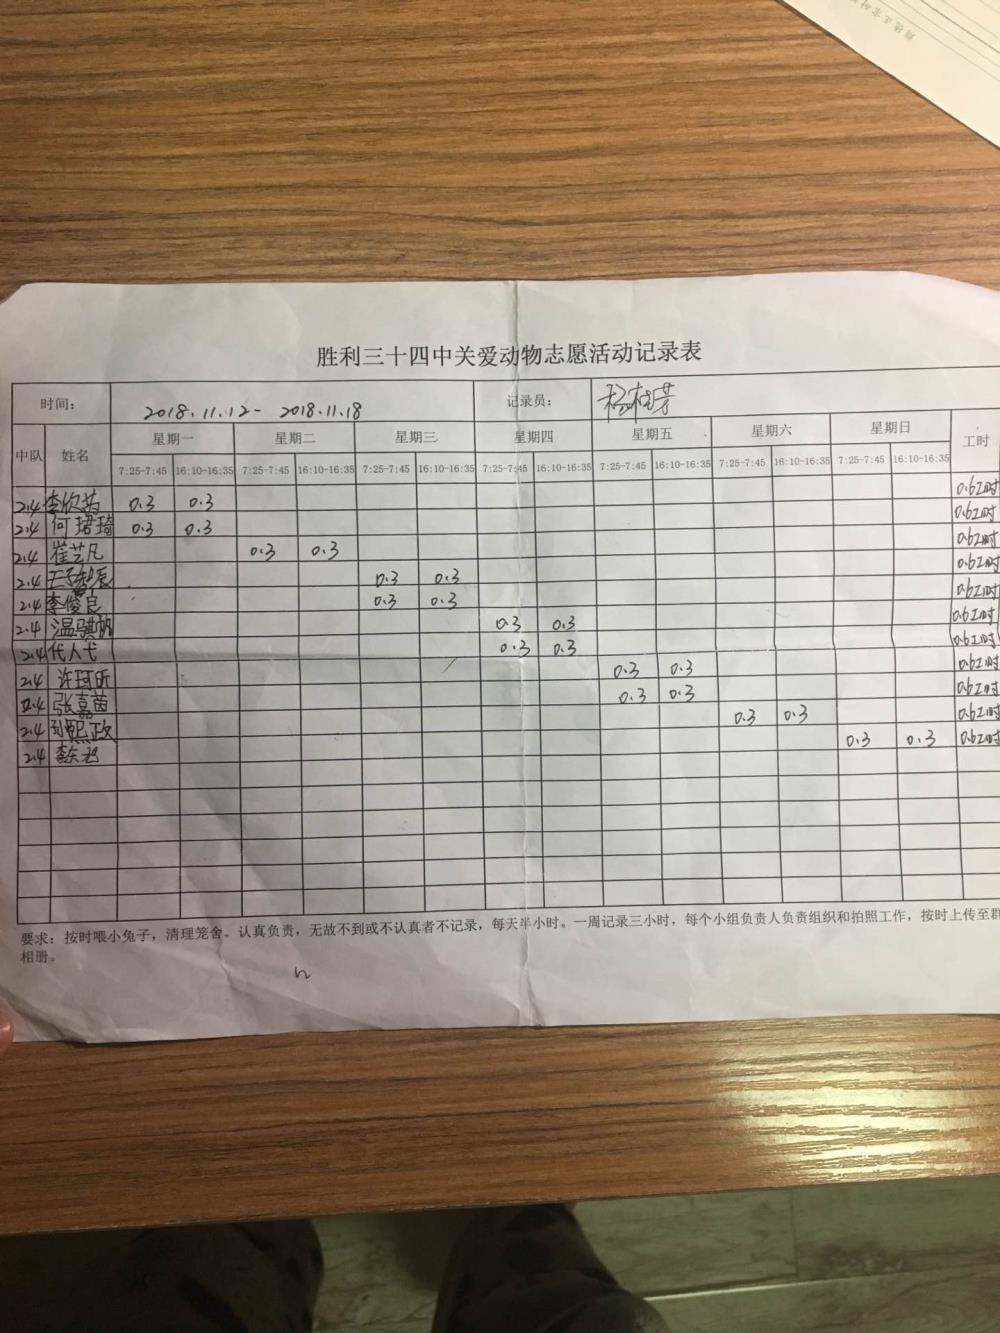 胜利三十四中关爱动物志愿活动记录表
时间： 2018.11.12- 2018.11.18 记录员： 杨桂芳
中队 姓名 星期一 星期二 星期三 星期四 星期五 星期六 星期日 工时
7:25-7:45 16:10-16:35 7:25-7:45 16:10-16:35 7:25-7:45 16:10-16:35 7:25-7:45 16:10-16:35 7:25-7:45 16:10-16:35 7:25-7:45 16:10-16:35 7:25-7:45 16:10-16:35
2.4 李欣芮 0.3 0.3 0.6工时
2.4 何珺琦 0.3 0.3 0.6工时
2.4 崔艺凡 0.3 0.3 0.6工时
2.4 王 辰 0.3 0.3 0.6工时
2.4 李俊良 0.3 0.3 0.6工时
2.4 温骐帆 0.3 0.3 0.6工时
2.4 代人弋 0.3 0.3 0.6工时
2.4 许珂昕 0.3 0.3 0.6工时
2.4 张嘉茵 0.3 0.3 0.6工时
2.4 孙熙政 0.3 0.3 0.6工时
2.4 李 0.3 0.3 0.6工时
要求：按时喂小兔子，清理笼舍。认真负责，无故不到或不认真者不记录，每天半小时。一周记录三小时，每个小组负责人负责组织和拍照工作，按时上传至群
相册。